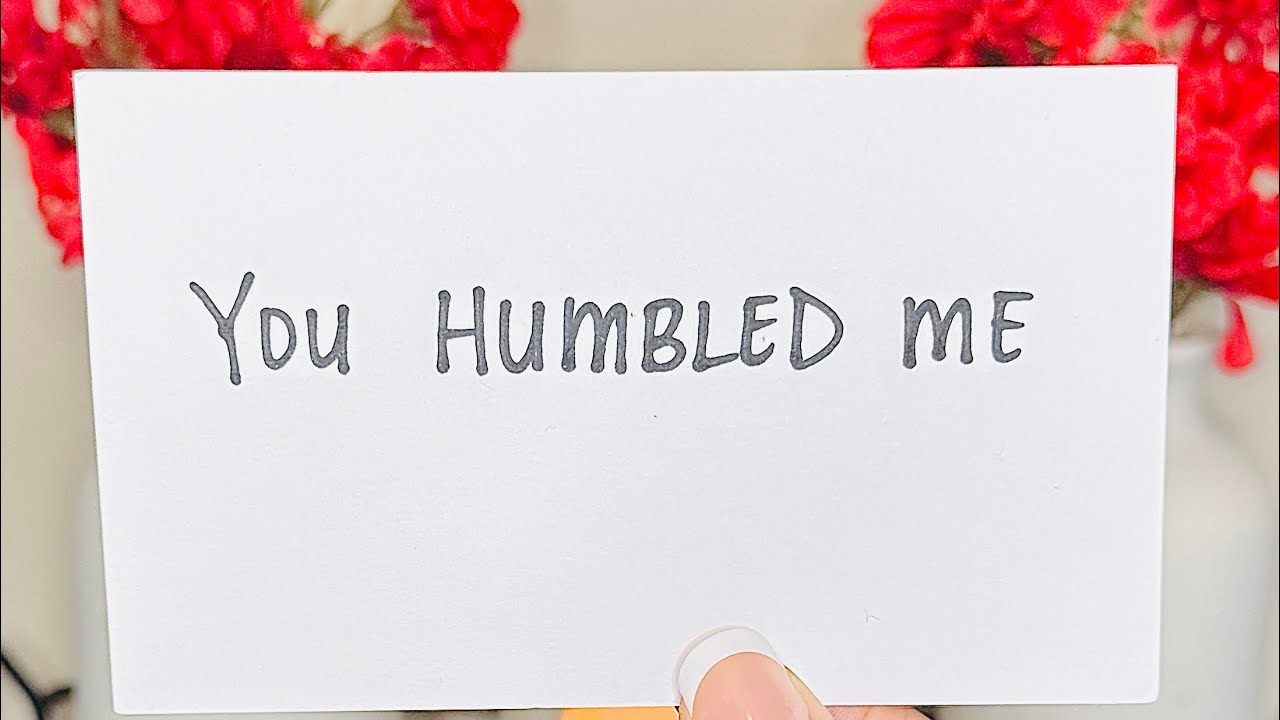 You HUMBLED ME